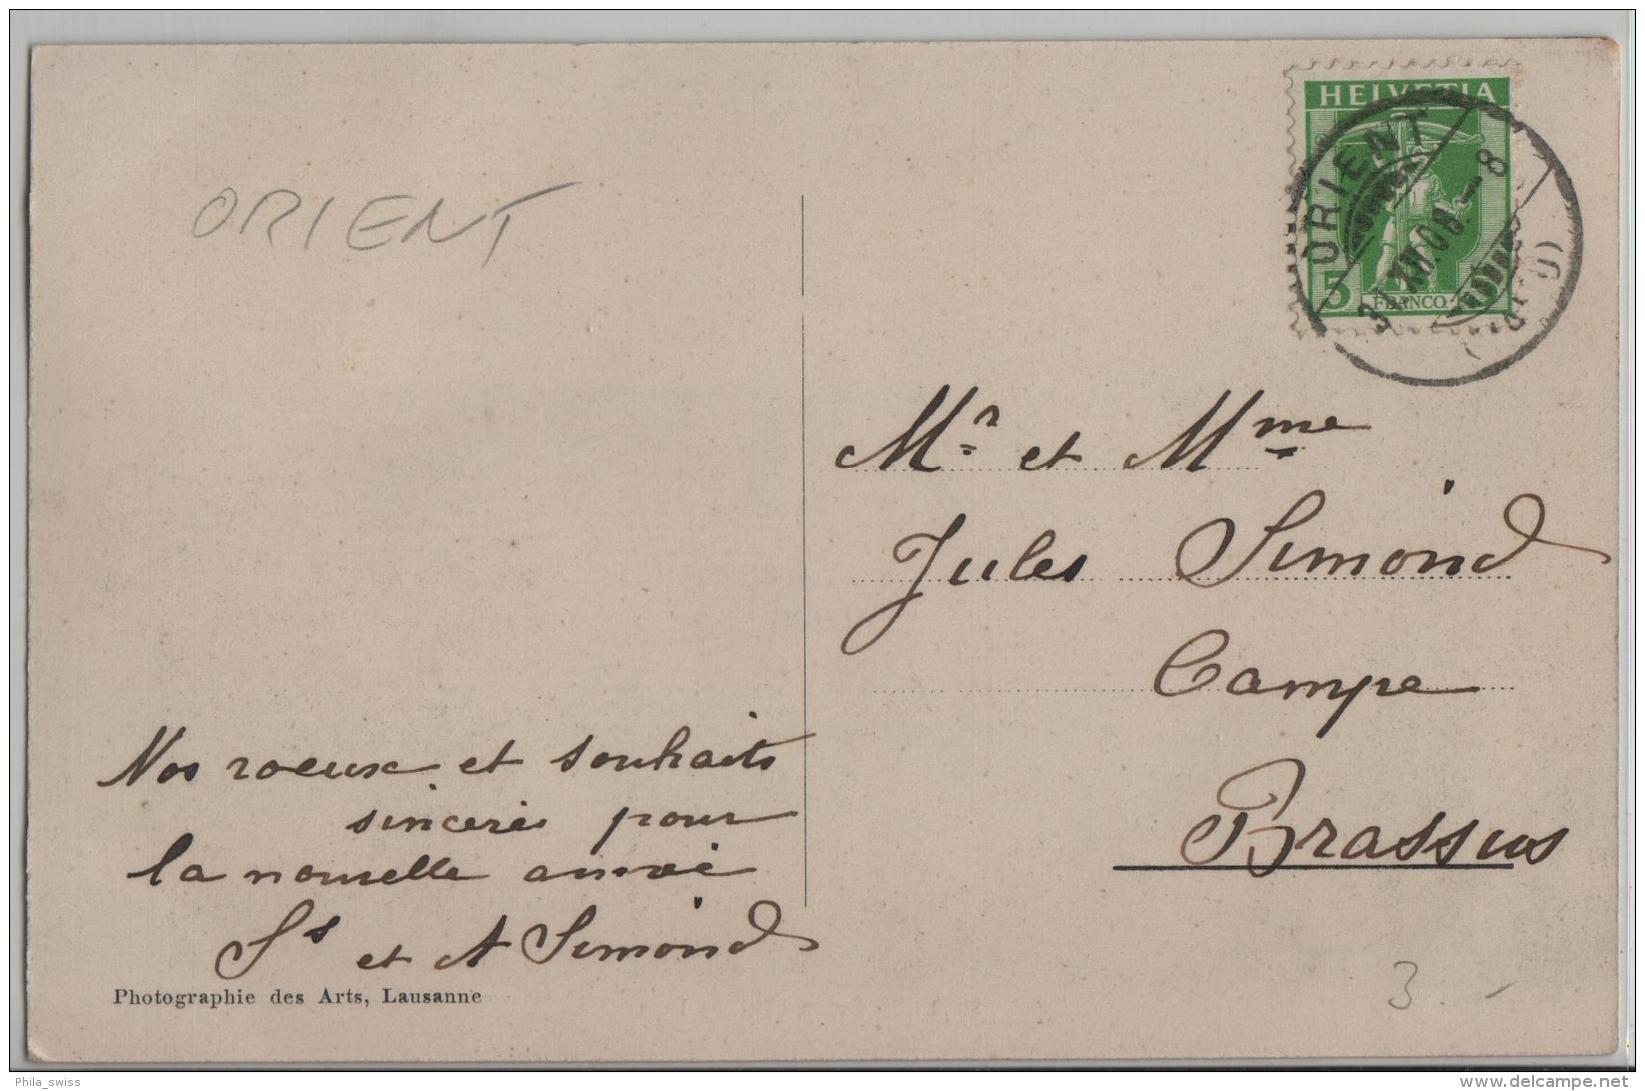 ORIENT
HELVETIA
ORIENT
31.XII.08.-8
5
FRANCO
Mr et Mme
Jules Simond
Campe
Brassus
Nos voeux et souhaits
sincères pour
la nouvelle année
Ss et A Simond
Photographie des Arts, Lausanne
3.-
Phila_swiss
www.delcampe.net